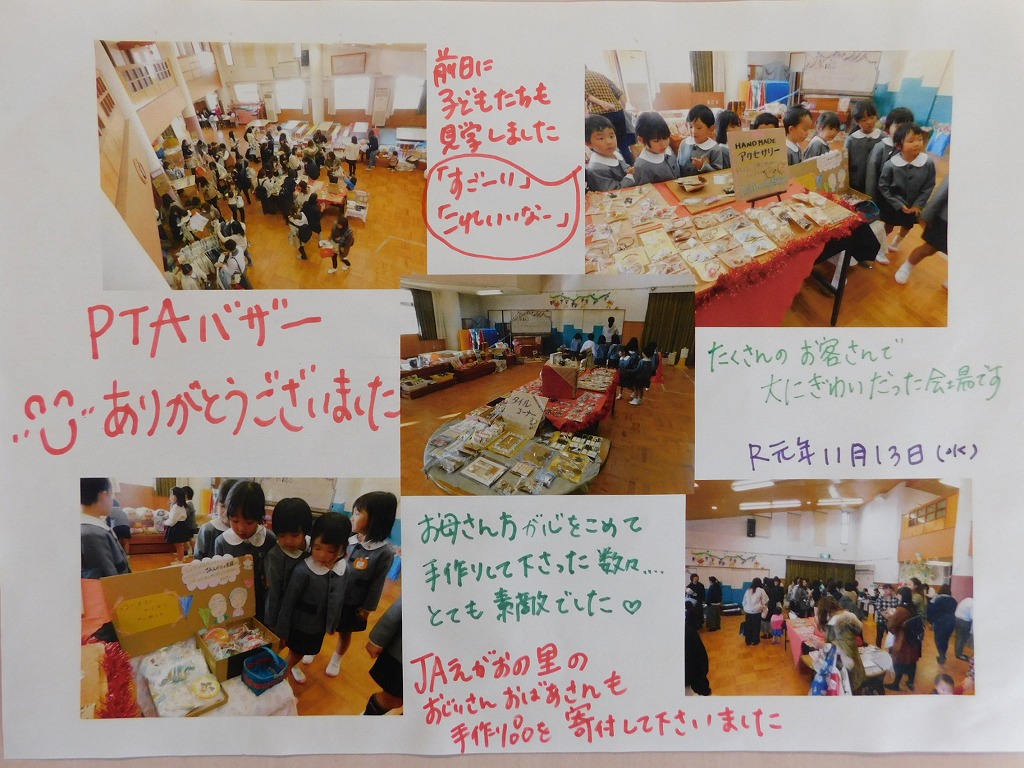 前日に
子どもたちも
見学しました
「すごーい」
「これいいなー」
HANDMADE
アクセサリー
PTAバザー
ありがとうございました
たくさんの お客さんで
大にぎわいだった会場です
R元年11月13日(水)
タイル
コーナー
お母さん方が心をこめて
手作りして下さった数々....
とても素敵でした♡
JAえがおの里の
おじいさん おばあさんも
手作り品を寄付して下さいました